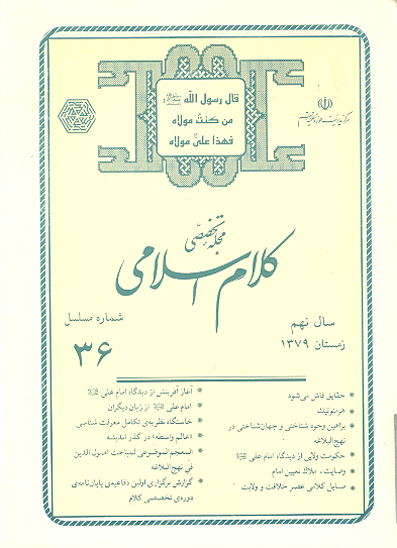 قال رسول الله ﷺ
من كنت مولاه
فهذا علىٌ مولاه
مجله تخصصی
کلام اسلامی
سال نهم
زمستان ۱۳۷۹
شماره مسلسل
۳۶
* حقایق فاش می‌شود
* هرمنوتیک
* براهین وجود شناختی و جهان‌شناختی در
نهج‌البلاغه
* حکومت ولایی از دیدگاه امام علی
* وصایت، ملاک تعیین امام
* مسایل کلامی عصر خلافت و ولایت
* آغاز آفرینش از دیدگاه امام علی
* امام علی از زبان دیگران
* خاستگاه نظریه‌ی تکامل معرفت شناسی
* «عالم واسطه» در گذر اندیشه
* المعجم الموضوعی لمباحث اصول الدین
فی نهج‌البلاغه
* گزارش برگزاری اولین دفاعیه‌ی پایان‌نامه‌ی
دوره‌ی تخصصی کلام